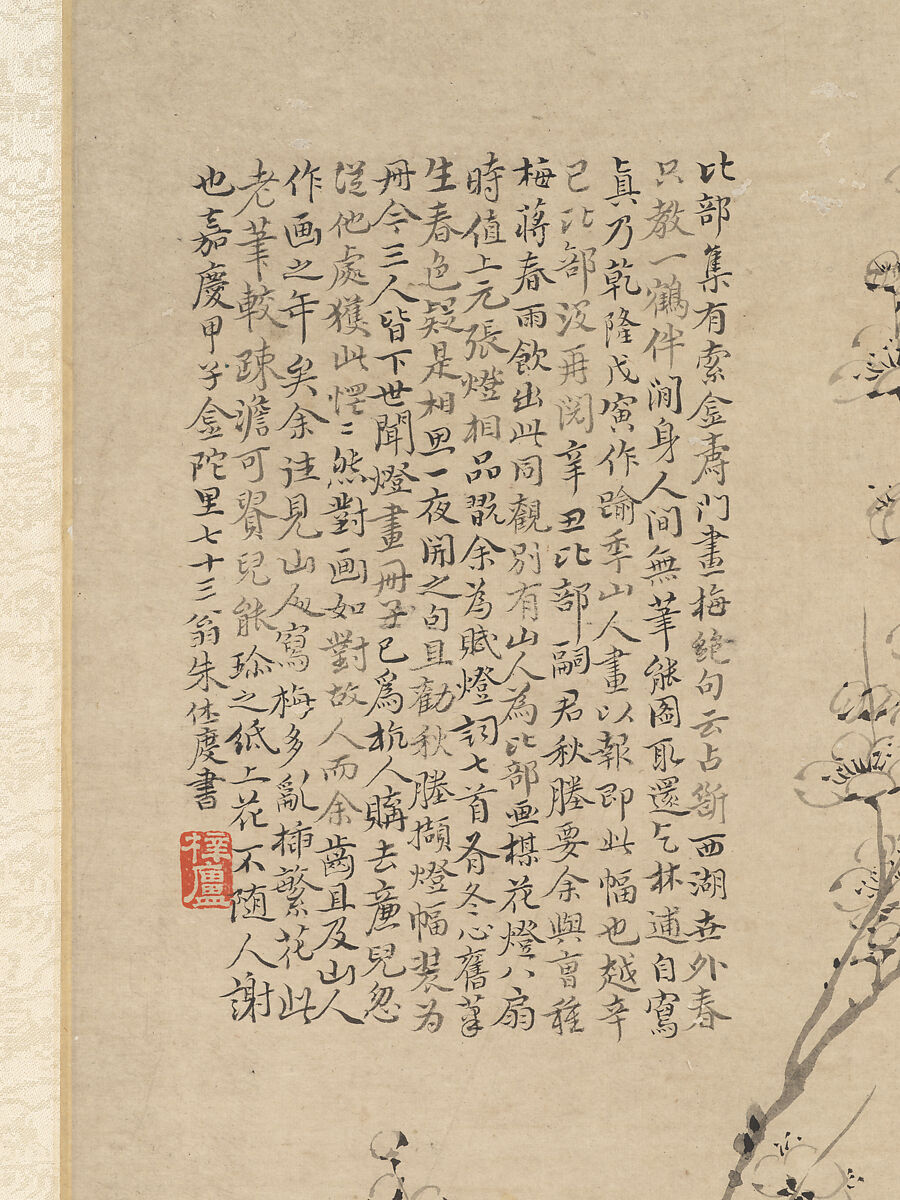 比部集有索金壽門畫梅絕句云占斷西湖世外春
只教一鶴伴閒身人間無筆能圖取還乞林逋自寫
真乃乾隆戊寅作踰季山人畫以報即此幅也越辛
巳比部沒再閱辛丑比部嗣君秋塍要余與
梅蔣春雨飲出此同觀別有山人為比部畫楳花燈八扇
時值上元張燈相品翫余為賦燈詞七首有冬心舊筆
生春色疑是相思一夜開之句且勸秋塍擷燈幅裝为
冊今三人皆下世聞燈畫冊子已爲杭人購去廉兒忽
從他處獲此惘〻然對画如對故人而余齒且及山人
作画之年矣余往見山人寫梅多亂插繁花此
老筆較疎澹可賢兒能珍之紙上花不随人謝
也嘉慶甲子盒陀里七十三翁朱休度書
梓廬